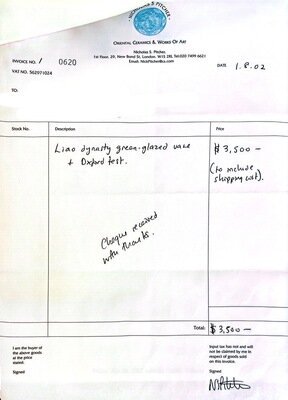 NICHOLAS S. PITCHER
ORIENTAL CERAMICS & WORKS OF ART
Nicholas S. Pitcher,
1st Floor, 29, New Bond St, London, W1S 2RL Tel: 020 7499 6621
INVOICE NO. / 0620
DATE 1.8.02
VAT NO. 562971024
TO:
Stock No. Description Price
Liao dynasty green-glazed vase $3,500 —
+ Oxford test. (to include
shipping cost).
Cheque received
with thanks.
Total: $3,500 —
I am the buyer of
the above goods
at the price
stated.
Signed
Input tax has not and will
not be claimed by me in
respect of goods sold
on this invoice.
Signed